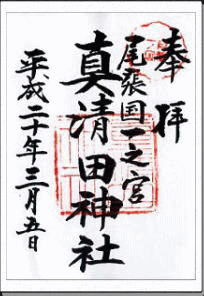 奉拝
尾張国一之宮
真清田神社
平成二十年三月五日